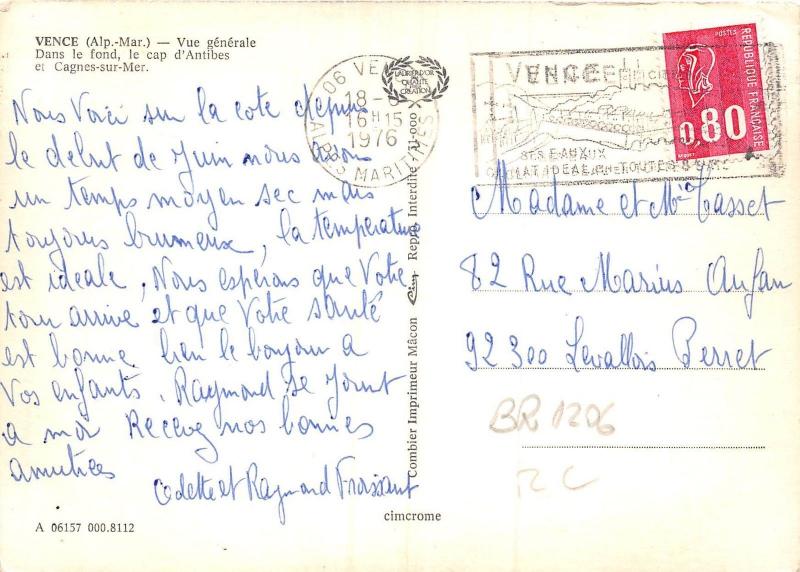 VENCE (Alp.-Mar.) — Vue générale
Dans le fond, le cap d'Antibes
et Cagnes-sur-Mer.
Nous Voici sur la cote depuis
le debut de Juin nous avons
un temps moyen sec mais
toujours brumeux, la température
est ideale, Nous espérons que Votre
tour arrive et que Votre santé
est bonne. bien le bonjour a
Vos enfants. Raymond se joint
a moi Recevez nos bonnes
amitiées
Odette et Raymond Froissant
A 06157 000.8112
06 VENCE
18-6
16H15
1976
ALPES MARITIMES
LAURIER D'OR
QUALITÉ
CREATION
Combier Imprimeur Mâcon Cim Repro Interdite 71-000
cimcrome
VENCE
SES EAUX
CLIMAT IDEAL EN TOUTES SAIS
POSTES
REPUBLIQUE FRANÇAISE
0,80
Madame et Mr Tasset
82 Rue Marius Aufan
92300 Levallois Perret
BR 1206
RC